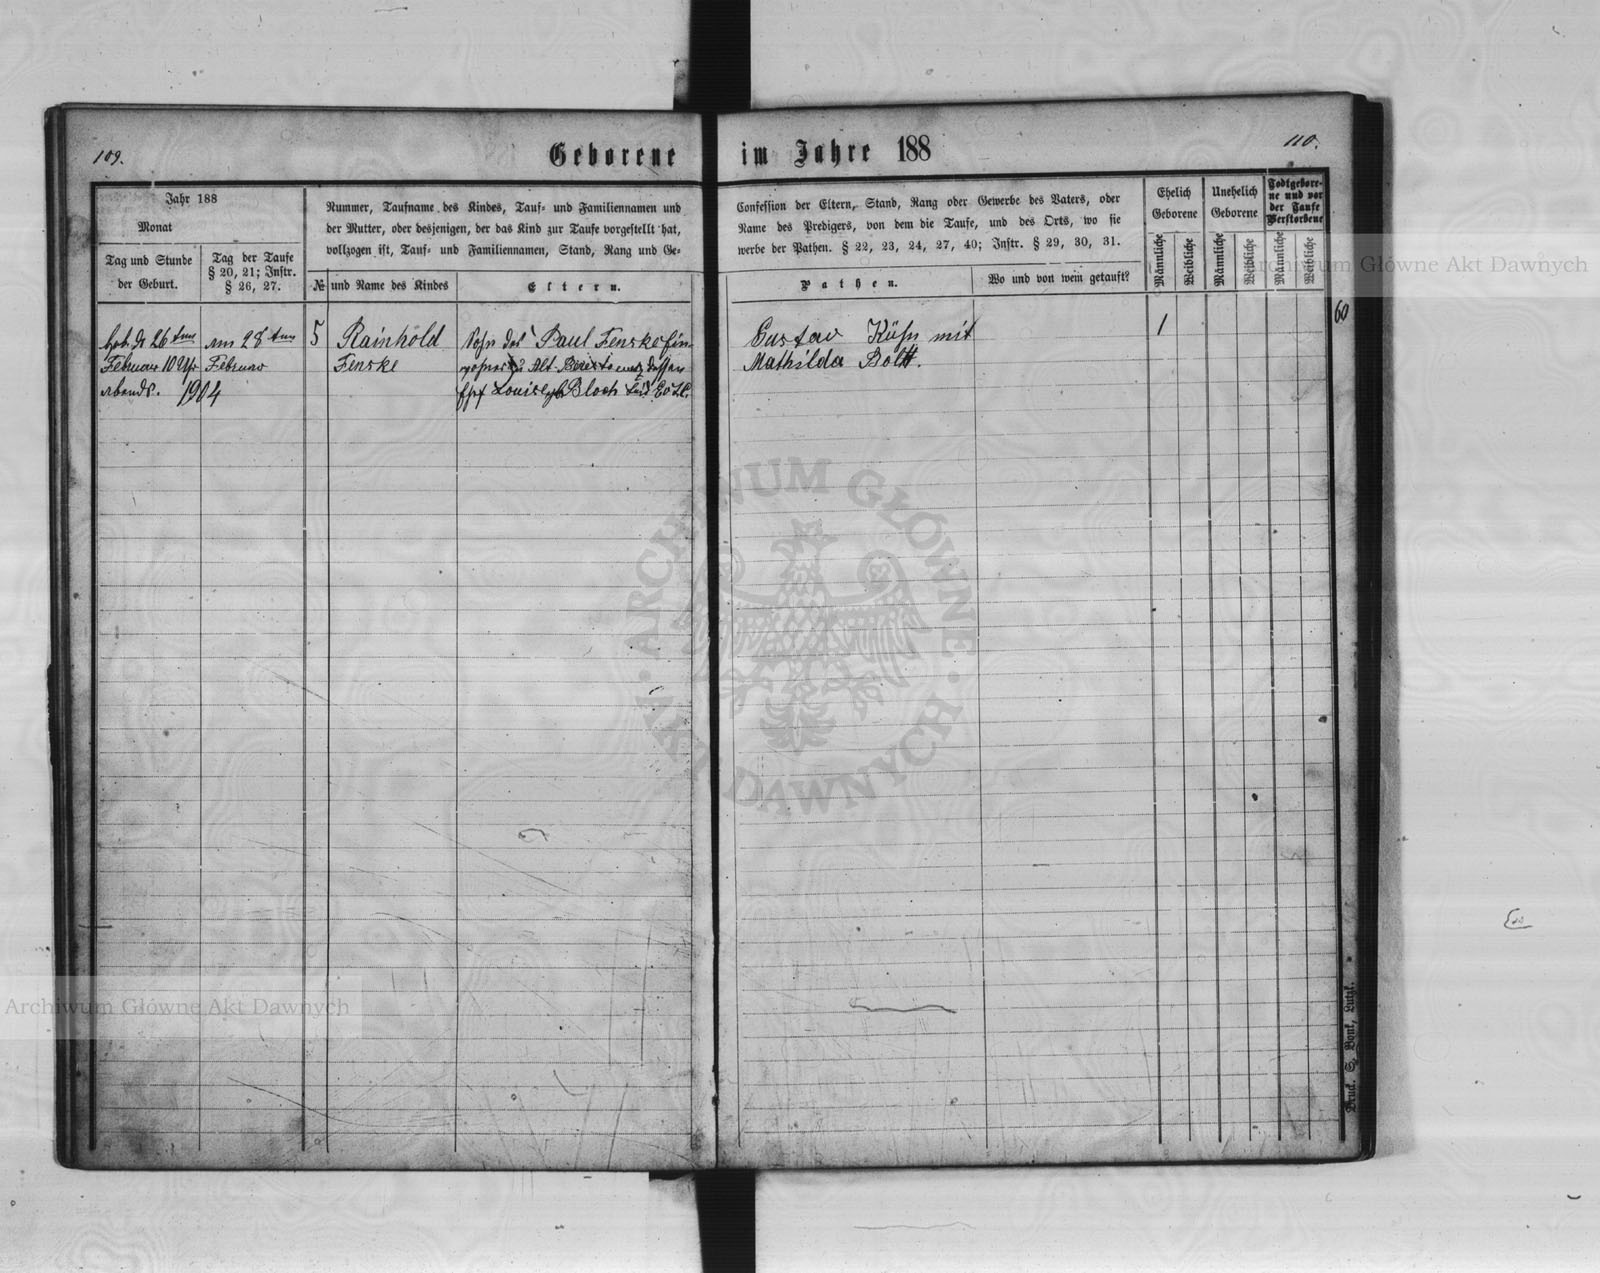 109.
Geborene
im Jahre 188
110.
Jahr 188
Monat
Tag und Stunde
der Geburt.
Tag der Taufe
§ 20, 21; Instr.
§ 26, 27.
Nummer, Taufname des Kindes, Tauf- und Familiennamen und
der Mutter, oder desjenigen, der das Kind zur Taufe vorgestellt hat,
vollzogen ist, Tauf- und Familiennamen, Stand, Rang und Ge-
№ und Name des Kindes
Eltern.
Confession der Eltern, Stand, Rang oder Gewerbe des Vaters, oder
Name des Predigers, von dem die Taufe, und des Orts, wo sie
werbe der Pathen. § 22, 23, 24, 27, 40; Instr. § 29, 30, 31.
Pathen.
Wo und von wem getauft?
Ehelich
Geborene
Unehelich
Geborene
Todtgebore-
ne und vor
der Taufe
Verstorbene
Männliche
Weibliche
Männliche
Weibliche
Männliche
Weibliche
60
Geb. d. 26 ten
Februar 10 Uhr
abends.
am 28 ten
Februar
1904
5
Rainhold
Fenske
Sohn des Paul Fenske Ein-
Alt dessen
Louise geb Bloch
Gustav Kühn mit
Mathilda Boltt.
1
Druck. S. Bonk, Lutzk.
Archiwum Główne Akt Dawnych
ARCHIWUM GŁÓWNE
AKT DAWNYCH
Archiwum Główne Akt Dawnych